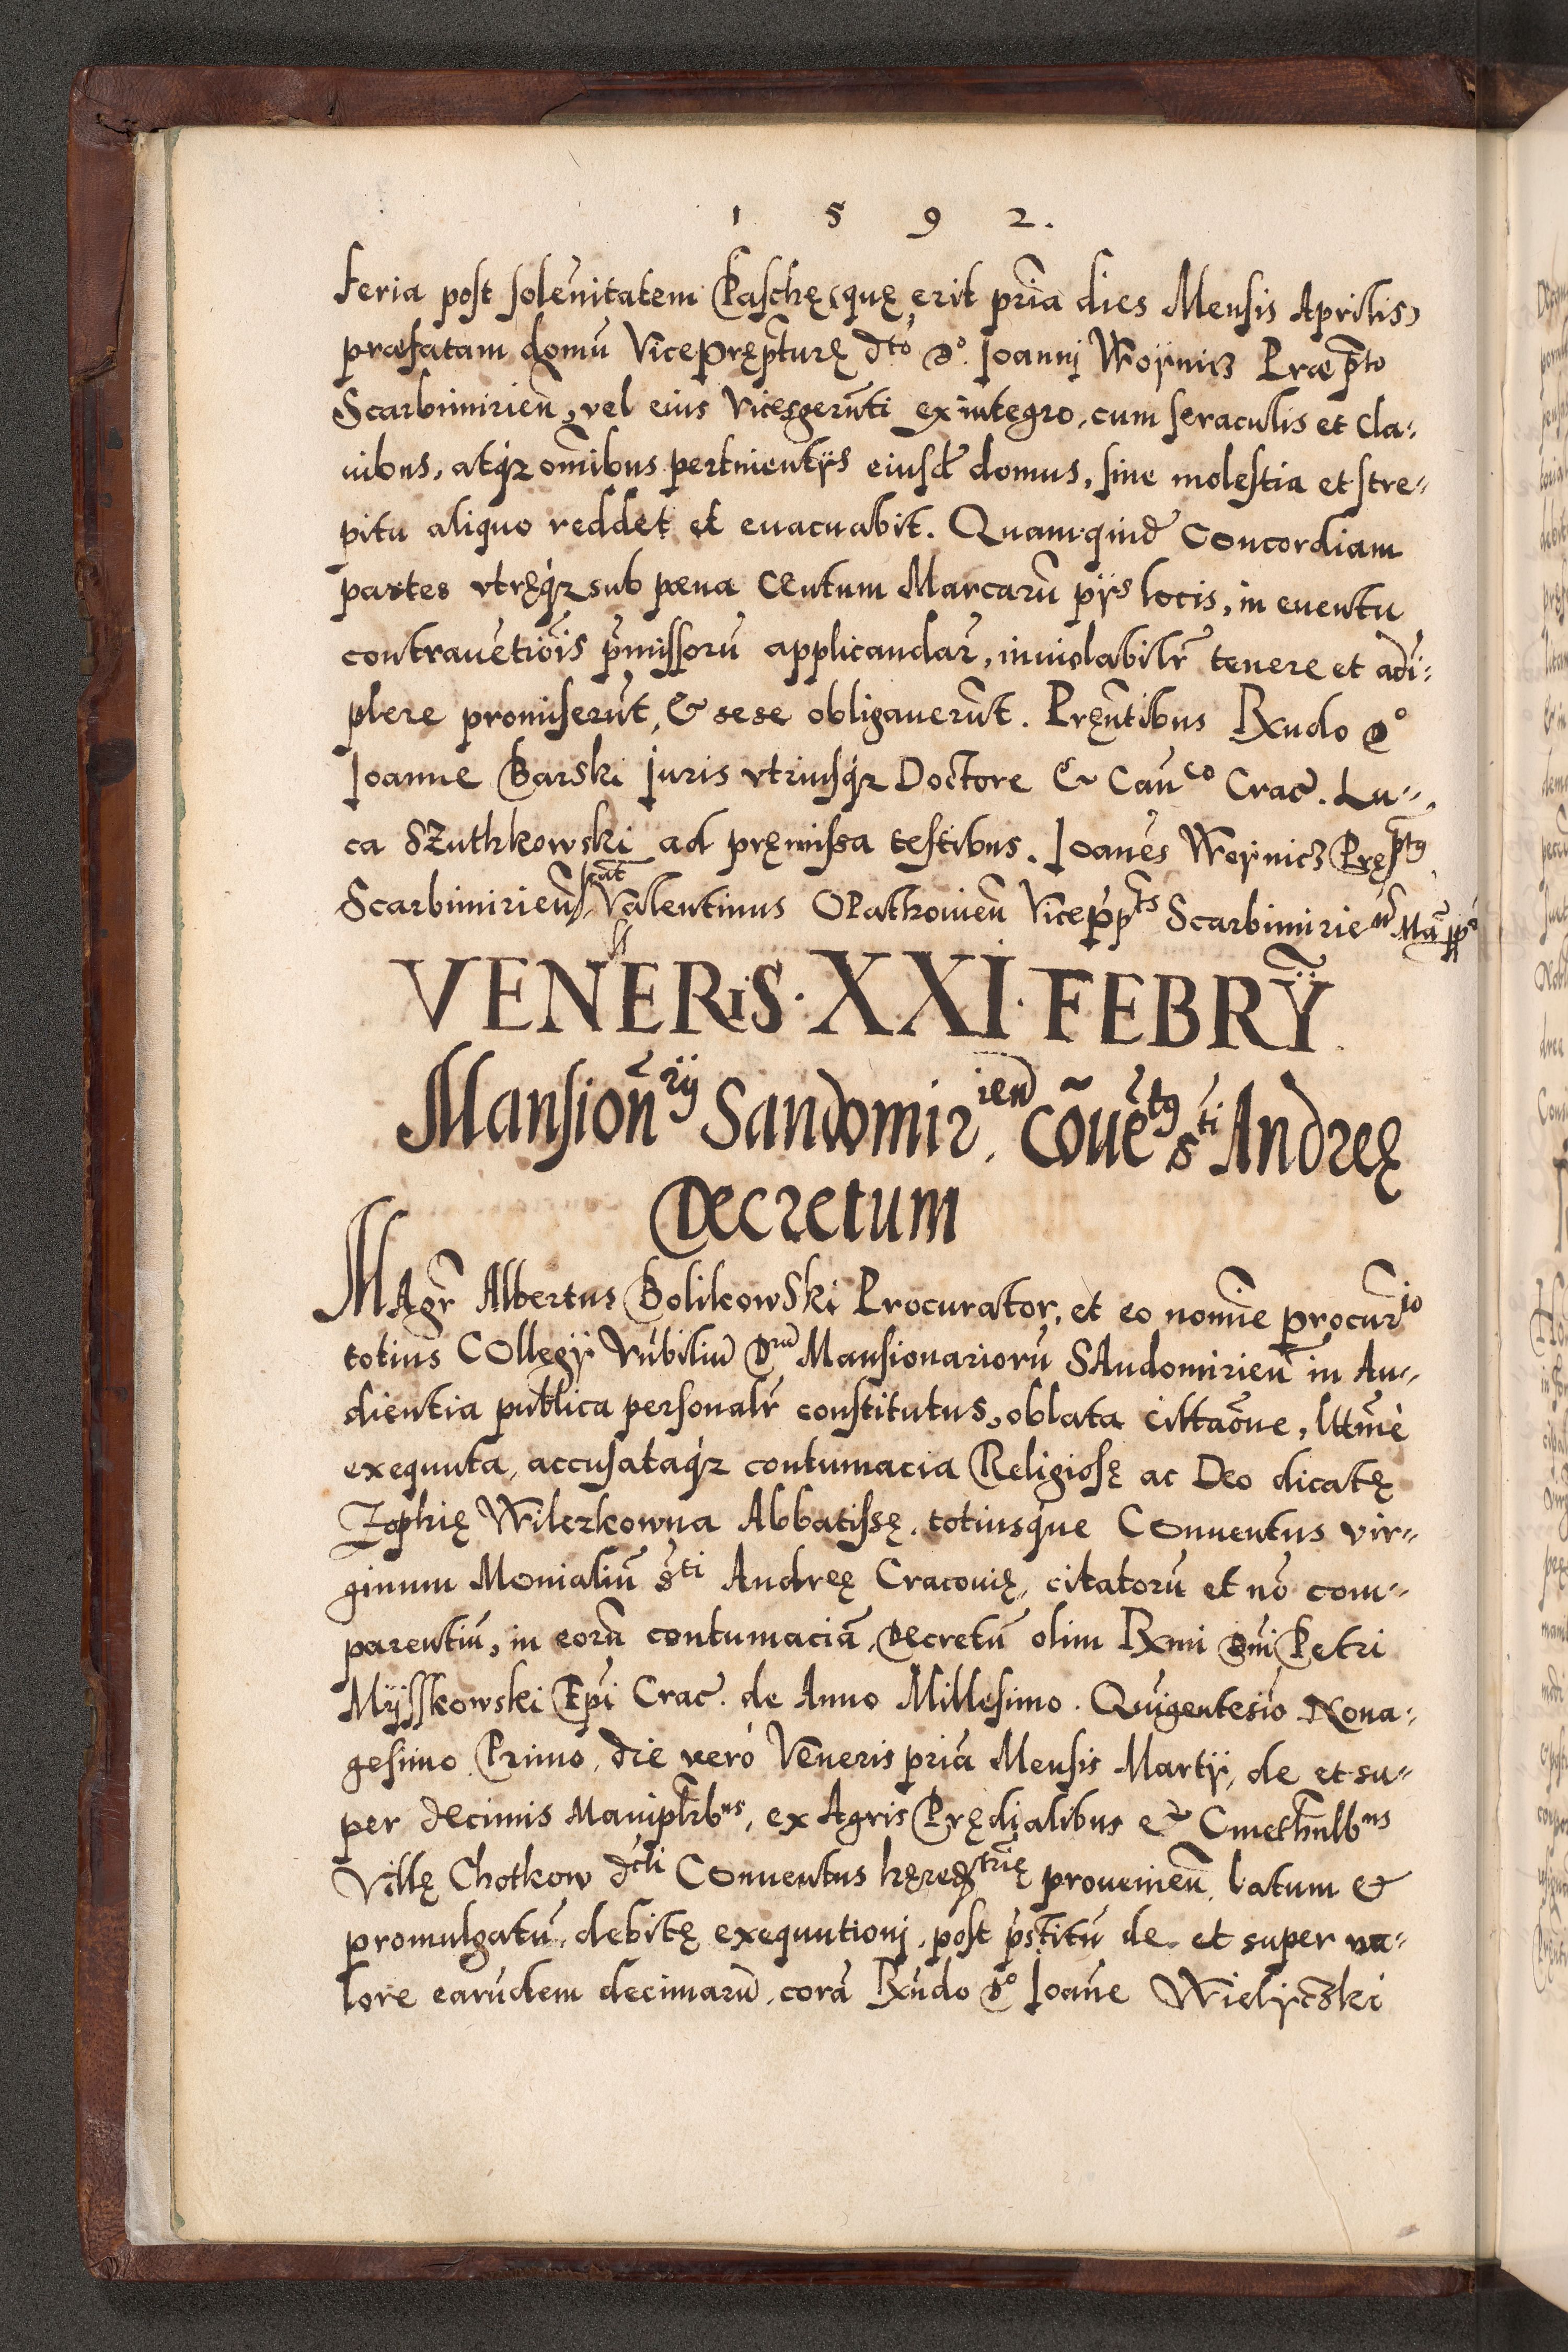 1 5 9 2.
feria post solen̄itatem Paschę (quę erit pri̅a dies Mensis Aprilis)
præfatam domū Viceprępt̅urę dcto Dº. Joannj Woynicz Præpto
Scarbimirien̄, vel eius Vicesgerūti ex integro, cum seraculis et cla⸗
uibus, atq3 om̄ibus pertinentijs eiusd̄ domus, sine molestia et stre⸗
pitu aliquo reddet et euacuabit. Quamquid̄ Concordiam
partes vtręq3 sub pœna Centum Marcarū pijs locis, in euentu
contrauētiōis p̄missorū applicandar̄, inuiolabilr̄ tenere et adi⸗
plere promiserūt, & sese obligauerūt. Pręn̄tibus Rxudo Dº
Joanne Barski Juris vtriusq3 Doctore & Can̄co Crac̄. Lu⸗
ca Szuthkowski ad pręmissa testibus. Joan̄es Woynicz Pręptus
Scarbimirien̄ Valentinus Opathouien̄ Vicep̄pts Scarbimirien̄ Mā pp̄
VENERIS · XXI · FEBRY̅
Mansion̄rij Sandomirien̄. Cōuētus Sti Andreę
Decretum
Magr̄ Albertus Bolikowski Procurator, et eo nomi̅e procur̄io
totius Collegij Vn̄bilium Dn̄r Mansionariorū Sandomirien̄ in Au⸗
dientia publica personalr̄ constitutus, oblata cittaōne, lttm̄e
exequuta, accusataq3 contumacia Religiosę ac Deo dicatę
Zophię Wilczkowna Abbatissę, totiusque Conuentus vir⸗
ginum Monialiū Sti Andreę Cracouię, citatorū et nō com⸗
parentiū, in eorū contumaciā, Decretū olim Rxmi Dn̄i Petri
Mysskowski Ep̄i Crac̄. de Anno Millesimo. Quigentesiō Nona⸗
gesimo Primo, die verò Veneris pria̅ Mensis Martij, de et su⸗
per decimis Maniplrbus, ex Agris Prędialibus & Cmethnlbus
Villę Chotkow dcti Conuentus hęredtrię prouenien̄, latum &
promulgatū, debitę exequutionj, post p̄stitū de et super va⸗
lore earūdem decimarū, corā Rxūdo Dº Joan̄e Wielyczki